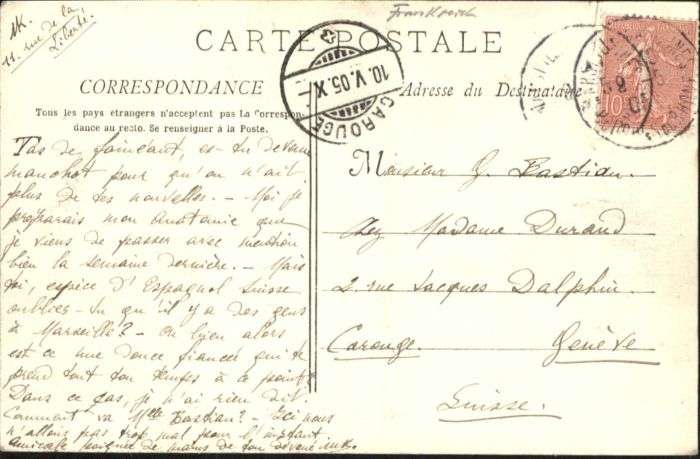 MK.
11. rue de la
Liberté.
Frankreich
CARTE POSTALE
CORRESPONDANCE
Tous les pays étrangers n'acceptent pas La Correspon-
dance au recto. Se renseigner à la Poste.
Adresse du Destinataire
CAROUGE
10.V.05.X
10
Tas de fainéant, es-tu devenu
manchot pour qu'on n'ait
plus de tes nouvelles. — Moi je
préparais mon anatomie que
je viens de passer avec mention
bien la semaine dernière. — Mais
toi, espice d'Espagnol Suisse
oublies-tu qu'il y a des gens
à Marseille? — Ou bien alors
est ce une douce fiancée qui te
prend tout ton temps à ce point?
Dans ce cas, je n'ai rien dit.
Comment va Mlle Bastian? — Ici nous
n'allons pas trop mal pour l'instant
Amicale poignée de mains de ton dévoué
Monsieur G. Bastian.
chez Madame Durand
2. rue Jacques Dalphin.
Carouge. Genève
Suisse.